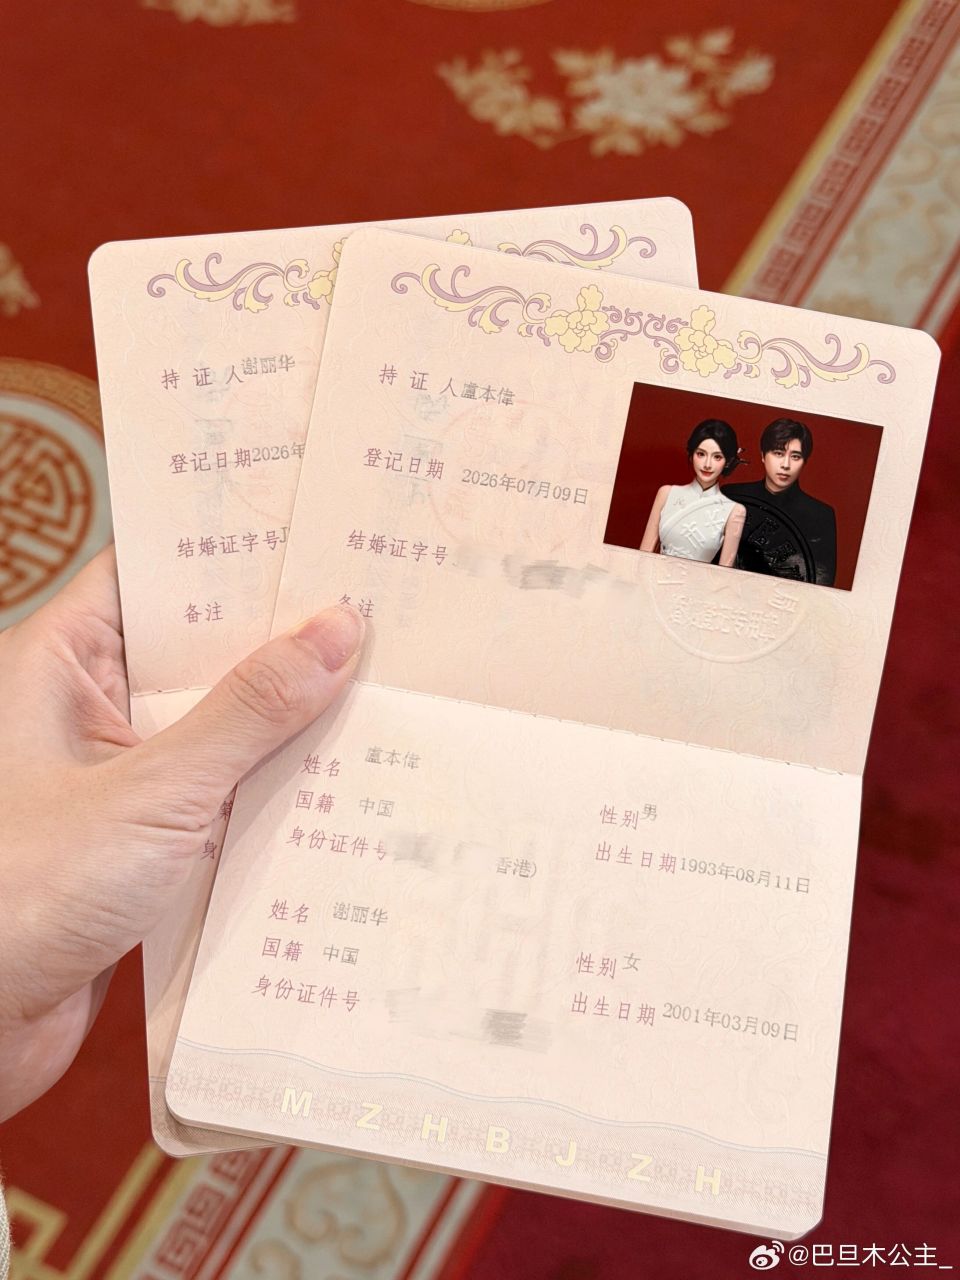 持证人谢丽华
登记日期2026年
结婚证字号J
备注
持证人盧本偉
登记日期 2026年07月09日
结婚证字号
备注
姓名 盧本偉
国籍 中国 性别男
身份证件号 香港) 出生日期1993年08月11日
姓名 谢丽华
国籍 中国 性别女
身份证件号 出生日期2001年03月09日
籍
身
MZHBJZH
@巴旦木公主_